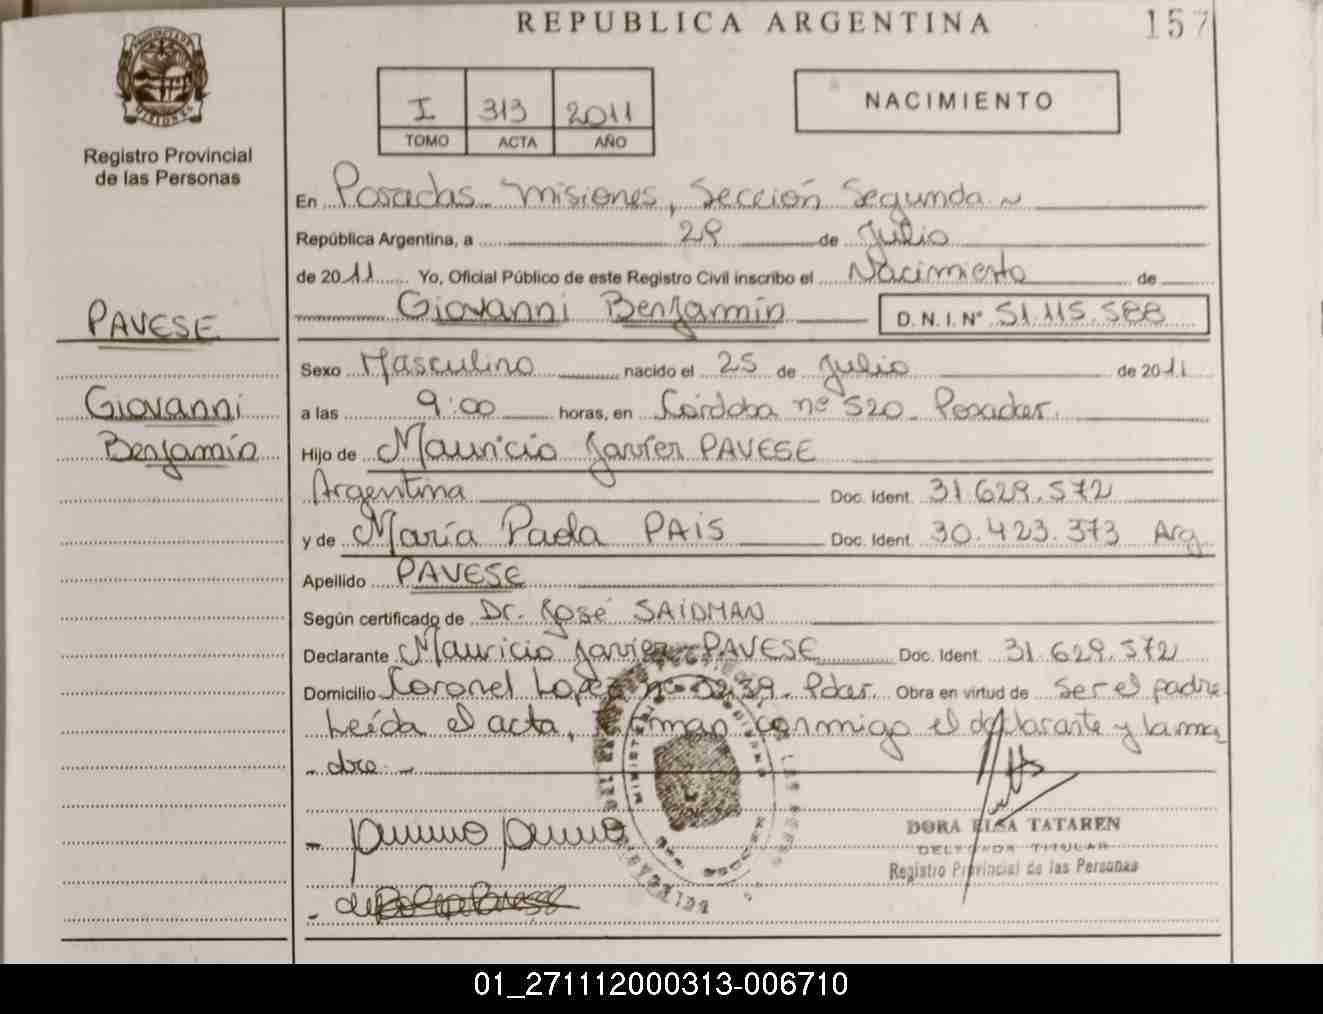 REPUBLICA ARGENTINA
157
I 313 2011
TOMO ACTA AÑO
NACIMIENTO
PROVINCIA DE MISIONES
Registro Provincial
de las Personas
PAVESE
Giovanni
Benjamín
En Posadas Misiones, Sección Segunda
República Argentina, a 28 de Julio
de 2011 Yo, Oficial Público de este Registro Civil inscribo el Nacimiento de
Giovanni Benjamín D.N.I.Nº 51.115.588
Sexo Masculino nacido el 25 de Julio de 2011
a las 9:00 horas, en Córdoba nº 520 Posadas.
Hijo de Mauricio Javier PAVESE
Argentina Doc. Ident. 31.629.572
y de María Paola PAIS Doc. Ident. 30.423.373 Arg
Apellido PAVESE
Según certificado de Dr. José SAIDMAN
Declarante Mauricio Javier PAVESE Doc. Ident. 31.629.572
Domicilio Coronel Lopez nº Pdas. Obra en virtud de ser el padre
Leída el acta, firman conmigo el declarante y la ma
dre
DORA ELSA TATAREN
DELEGADA TITULAR
Registro Provincial de las Personas
01_271112000313-006710